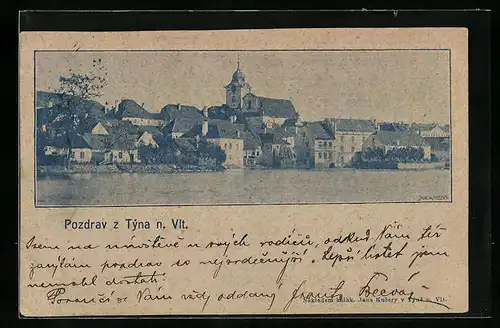 Pozdrav z Týna n. Vlt.
Jsem na návštěvě u svých rodičů, odkud Vám též
zasýlám pozdrav co nejsrdečnější. Lepší lístek jsem
nemohl dostati.
Poroučí se Vám vždy oddaný
Nákladem knihk. Jana Kučery v Týně n. Vlt.